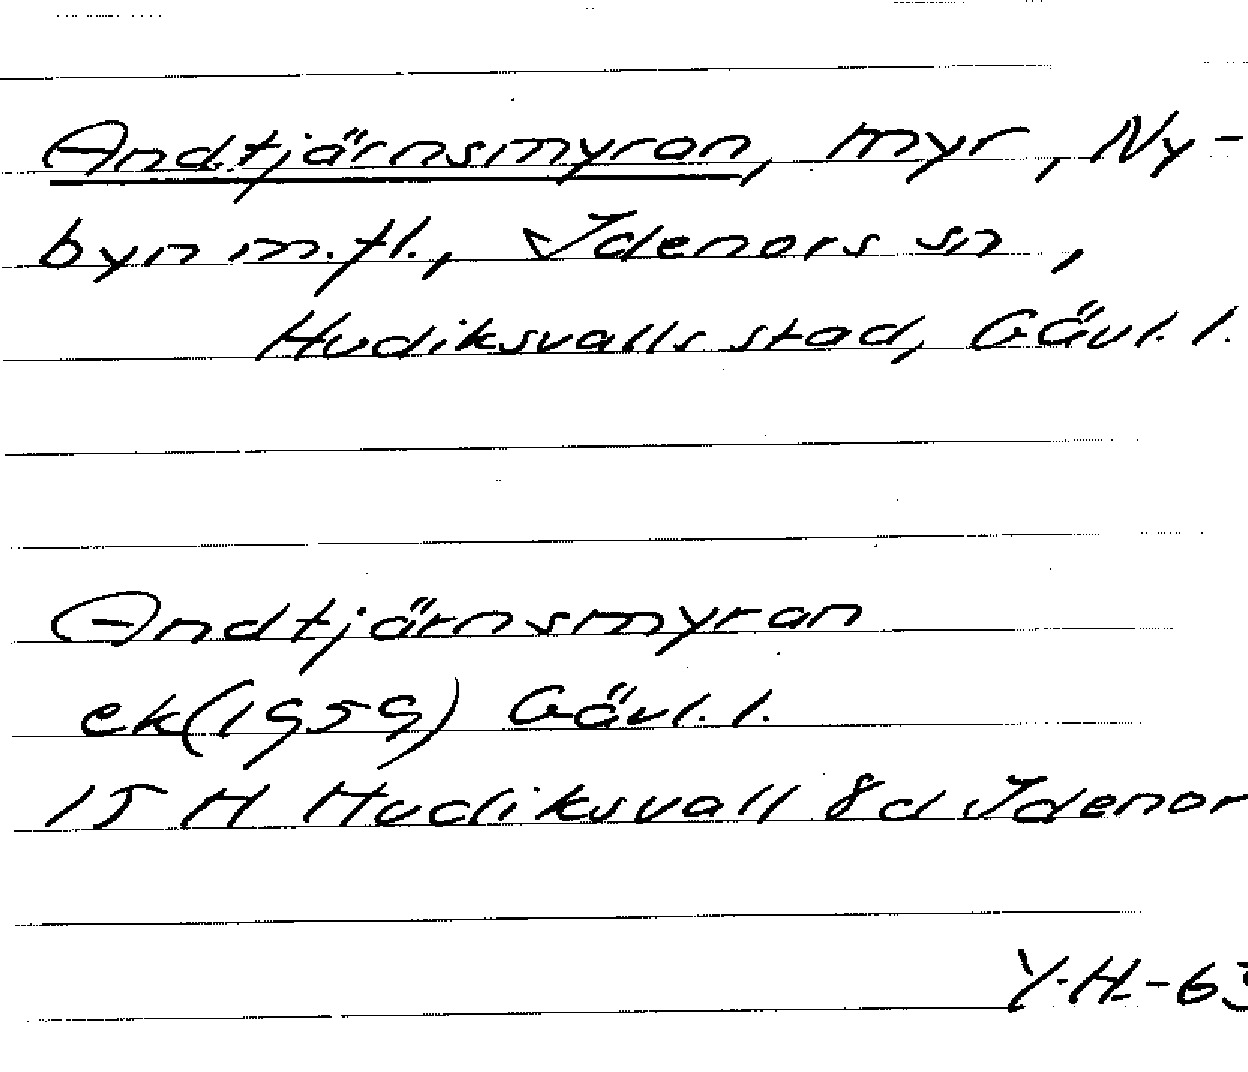 Andtjärnsmyran, myr, Ny-
byn m.fl., Idenors sn,
Hudiksvalls stad, Gävl. l.
Andtjärnsmyran
ek(1959) Gävl. l.
15 H Hudiksvall 8d Idenor
Y.H.-63